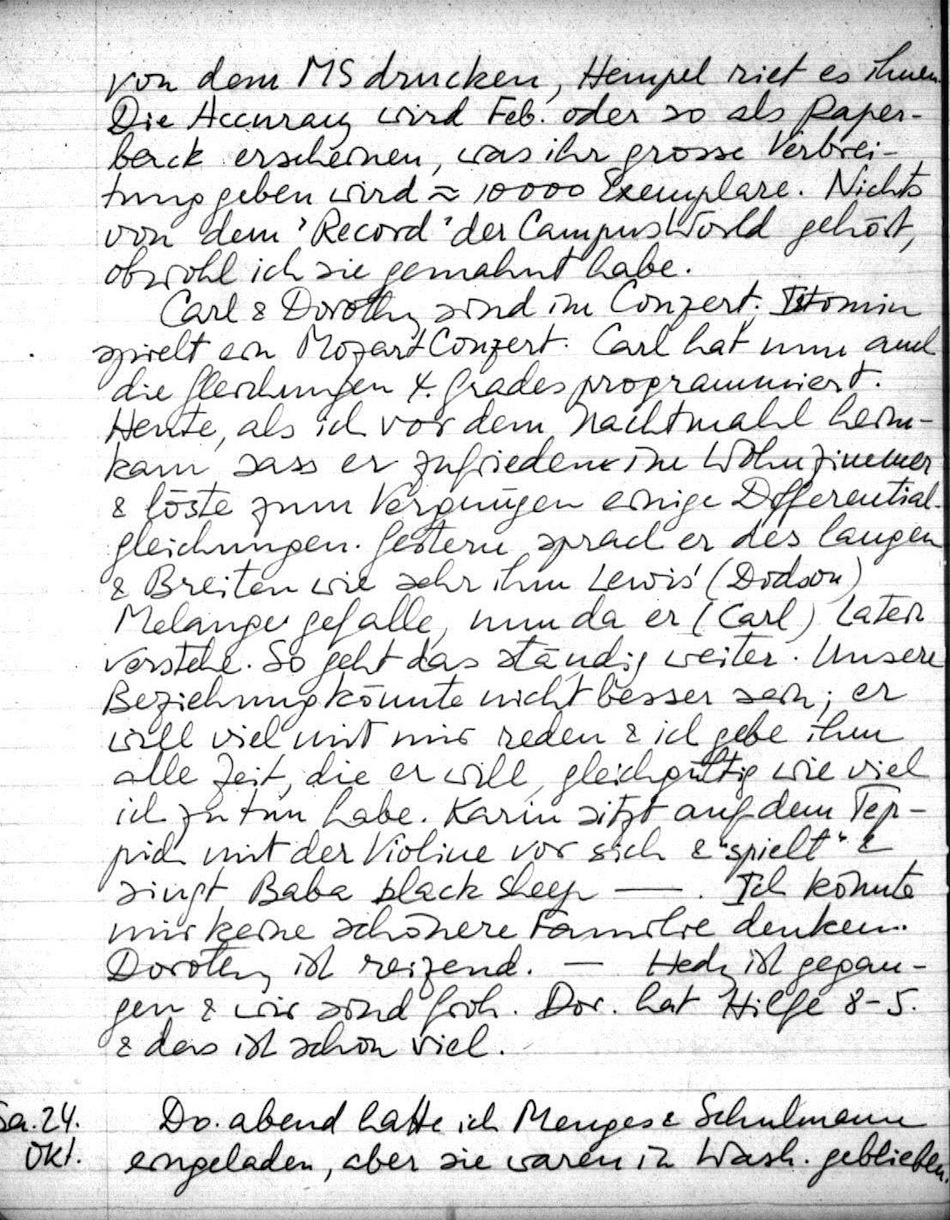 von dem MS drucken, Hempel riet es ihnen
Die Accuracy wird Feb. oder so als Paper-
back erscheinen, was ihr grosse Verbrei-
tung geben wird ≈ 10000 Exemplare. Nichts
von dem 'Record' der Campus World gehört,
obwohl ich sie gemahnt habe.
Carl & Dorothy sind im Conzert. Istomin
spielt ein Mozart Conzert. Carl hat nun auch
die Gleichungen 4. Grades programmiert.
Heute, als ich vor dem Nachtmahl heim-
kam sass er zufrieden im Wohnzimmer
& löste zum Vergnügen einige Differential-
gleichungen. Gestern sprach er des langen
& Breiten wie sehr ihm Lewis' (Dodson)
Melange gefalle, nun da er (Carl) Latein
verstehe. So geht das ständig weiter. Unsere
Beziehung könnte nicht besser sein; er
will viel mit mir reden & ich gebe ihm
alle Zeit, die er will, gleichgültig wie viel
ich zu tun habe. Karin sitzt auf dem Tep-
pich mit der Violine vor sich & "spielt" &
singt Baba black sheep —. Ich könnte
mir keine schönere Familie denken.
Dorothy ist reizend. — Hedy ist gegan-
gen & wir sind froh. Dor. hat Hilfe 8-5.
& das ist schon viel.
Sa. 24. Do. abend hatte ich Menges & Schulmann
Okt. eingeladen, aber sie waren in Wash. geblieben.